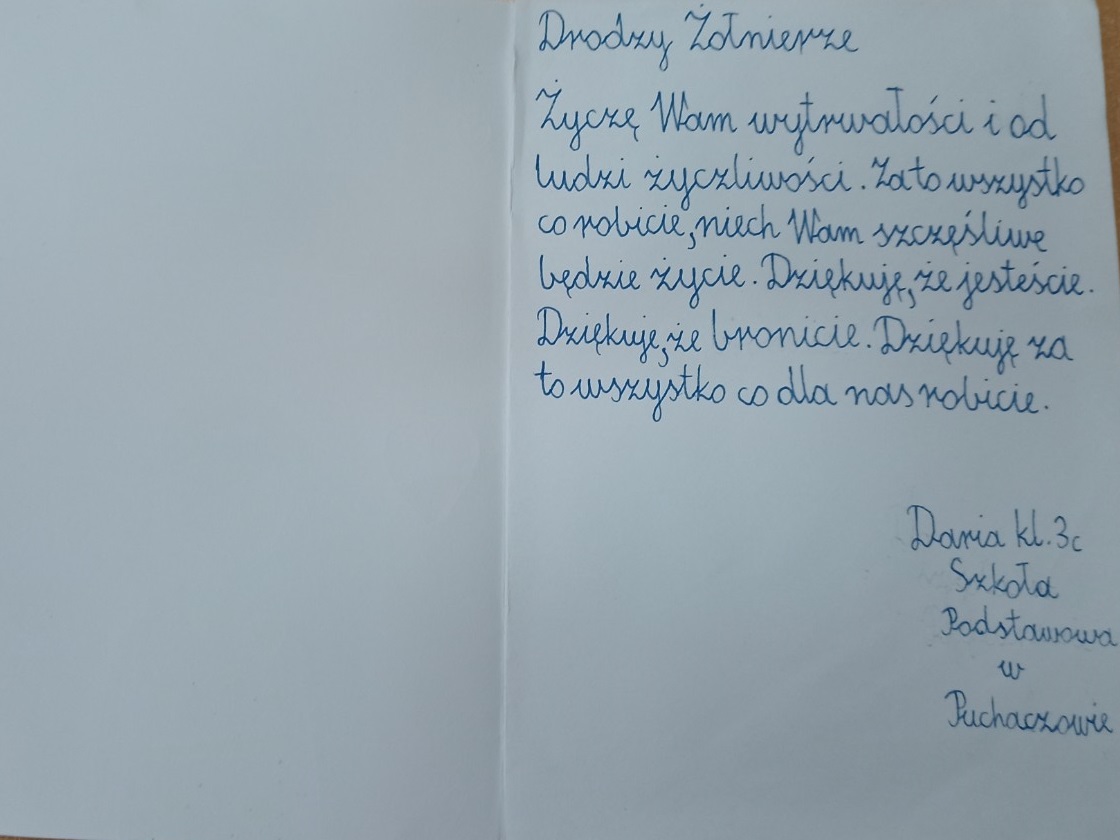 Drodzy Żołnierze
Życzę Wam wytrwałości i od
ludzi życzliwości. Za to wszystko
co robicie, niech Wam szczęśliwe
będzie życie. Dziękuję, że jesteście.
Dziękuje, że bronicie. Dziękuję za
to wszystko co dla nas robicie.
Daria kl. 3c
Szkoła
Podstawowa
w
Puchaczowie